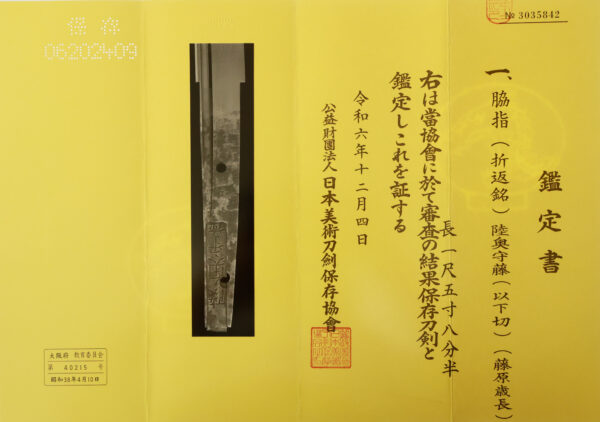 № 3035842
鑑定書
一、脇指（折返銘）陸奥守藤（以下切）（藤原歳長）
長一尺五寸八分半
右は當協會に於て審査の結果保存刀剣と
鑑定しこれを証する
令和六年十二月四日
公益財團法人日本美術刀剣保存協會
保存
06202409
大阪府 教育委員会
第 40215 号
昭和38年4月10日